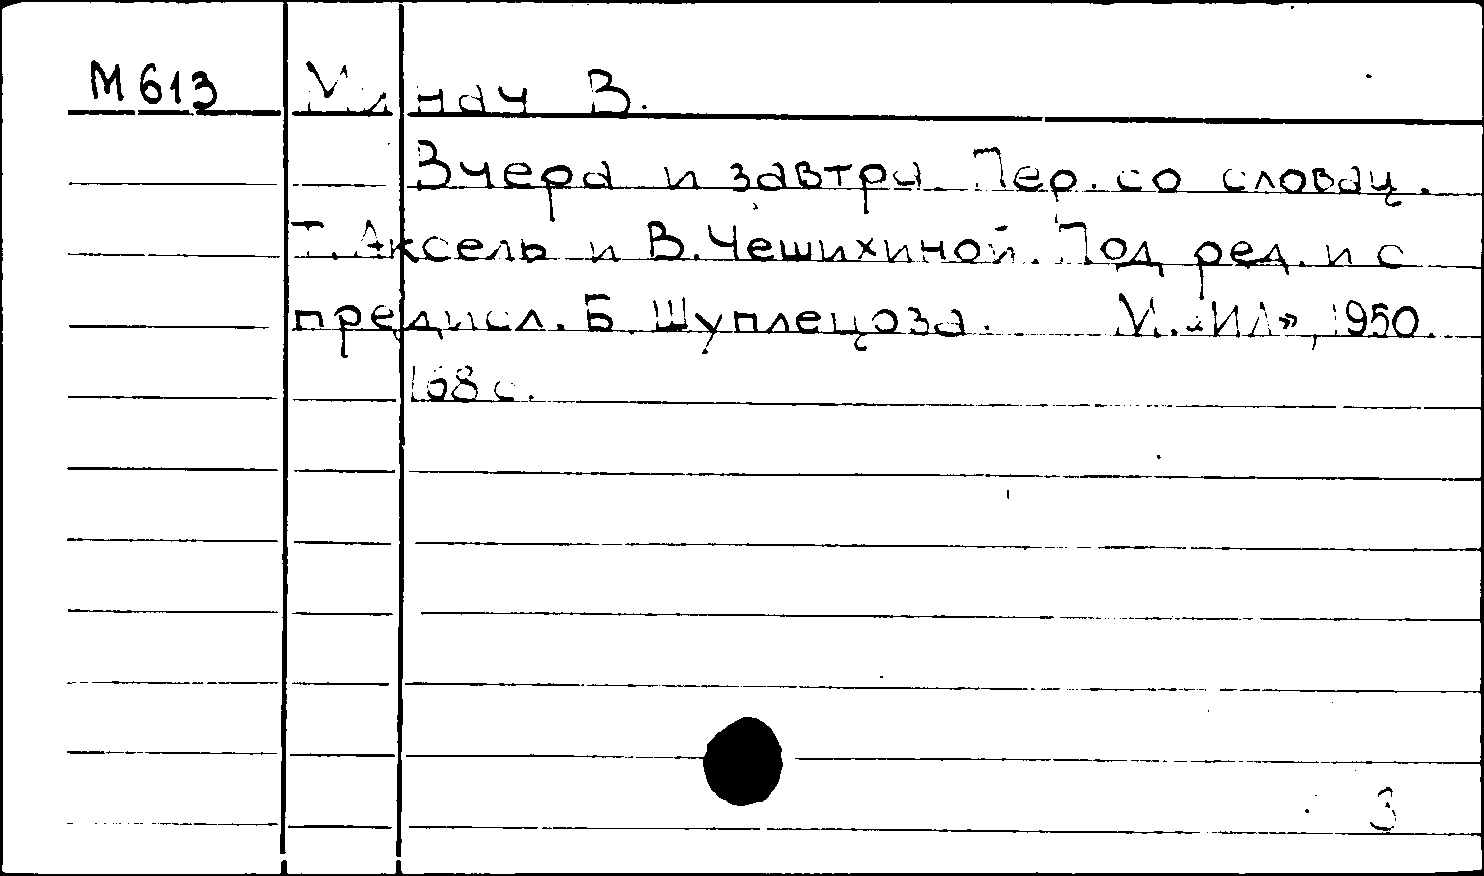 М613 Минач В.
Вчера и завтра. Пер. со словац.
Т. Аксель и В. Чешихиной. Под ред. и с
предисл. Б. Шуплецова. М. «ИЛ», 1950.
168 с.
3